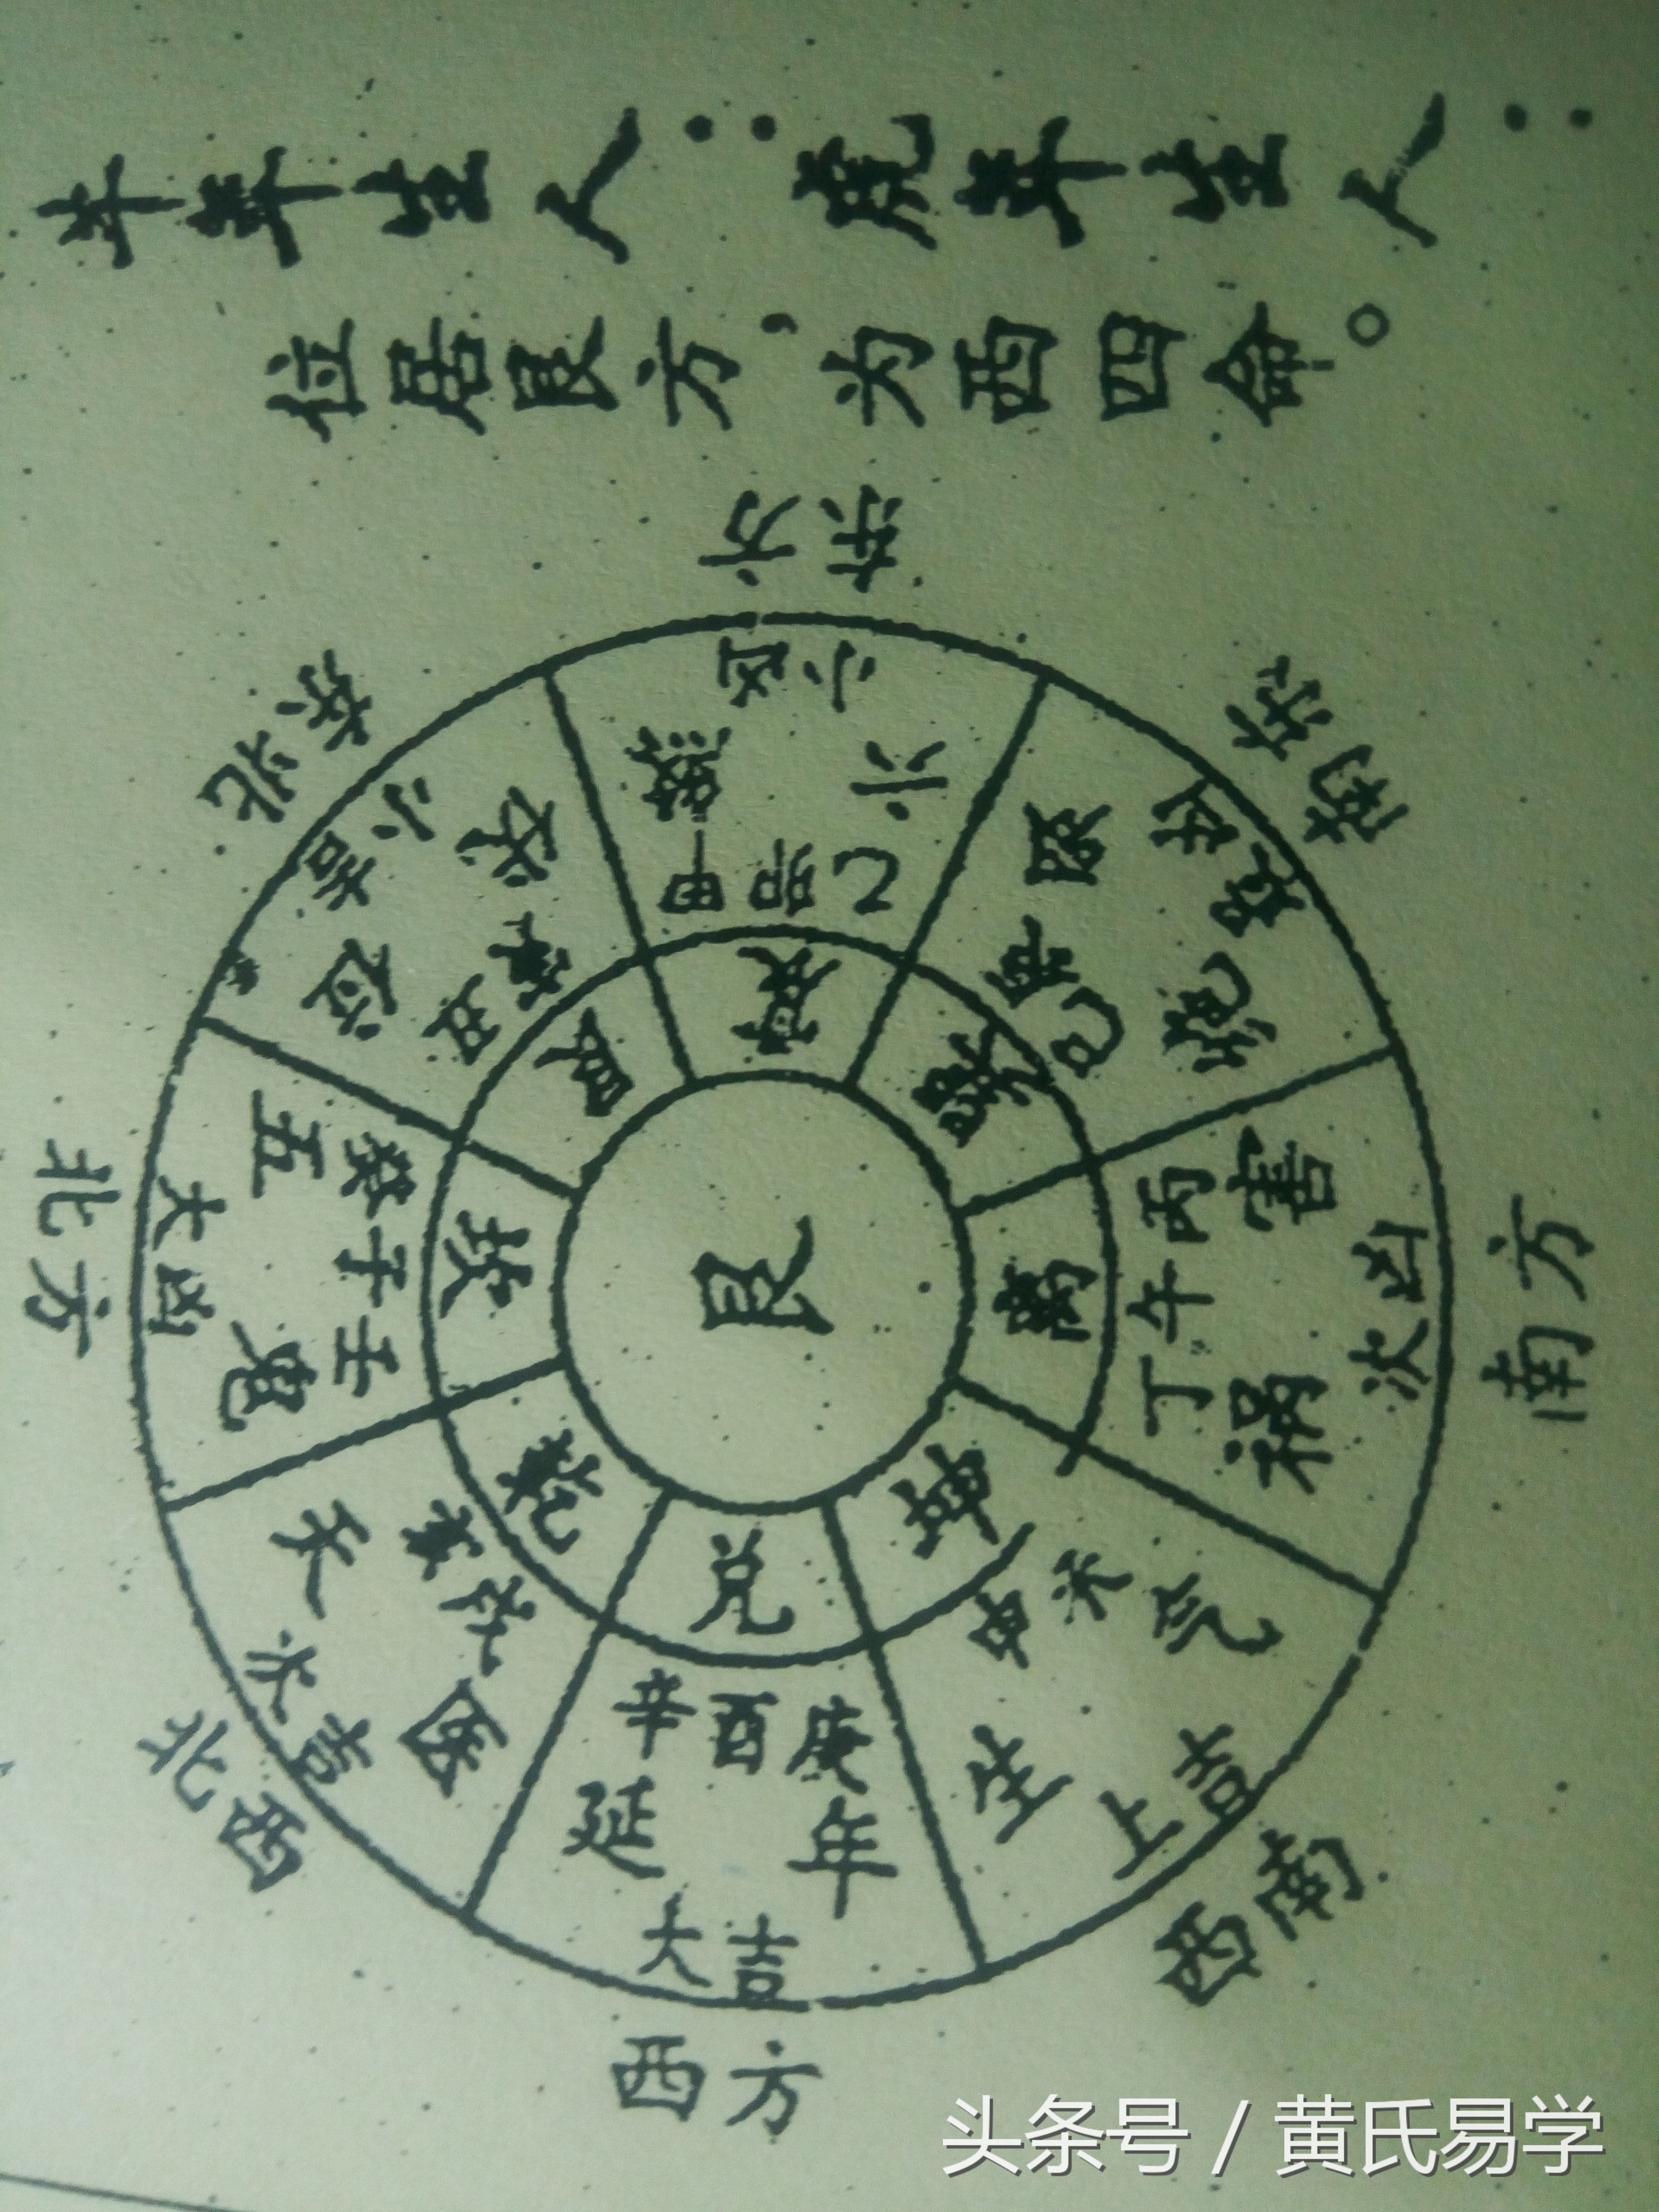 牛年生人：虎年生人：
位居艮方，为西四命。
东方
小凶
六
煞
甲卯乙
震
东南
凶
绝
巳
巽
南方
次凶
祸
害
丙午丁
离
西南
上吉
生
气
未申
坤
西方
大吉
延
年
辛酉庚
兑
西北
次吉
天
医
戌
乾
北方
大凶
五
鬼
癸子壬
坎
东北
小吉
伏
位
丑
艮
艮
头条号 / 黄氏易学